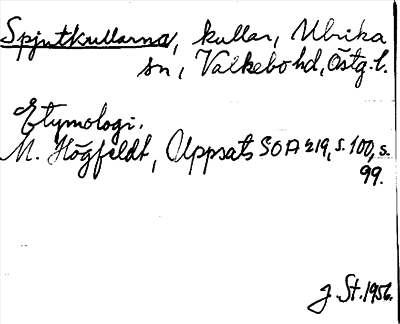 Spjutkullarna, kullar, Ulrika
sn, Valkebo hd, Östg.l.
Etymologi.
M. Högfeldt, Uppsats SOA 219, s. 100, s.
99.
J. St. 1956.